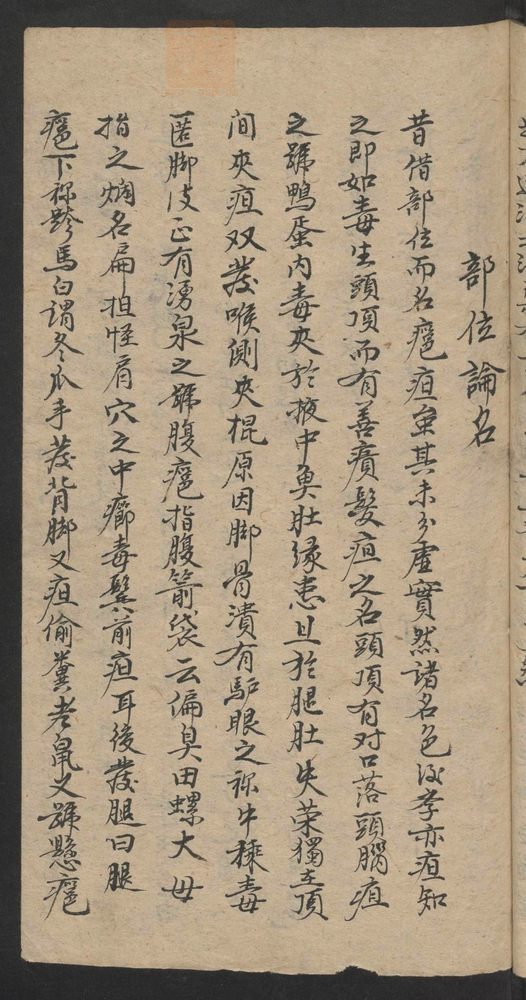 部位論名
昔借部位而名瘡疽虽其未分虚實然諸名色後孝亦疽知
之即如毒生頭頂而有善疬髮疽之名頭頂有对口落頭腦疽
之號鴨蛋内毒夾於掖中奥肚缘患且於腿肚失荣獨主項
间夾疽双發喉側夾棍原因脚骨潰有馿眼之称牛𣗳毒
匿脚皮正有湧泉之號腹瘡指腹箭袋云偏臭田螺大毋
指之煳名扁担怪肩穴之中癤毒鬓前疽耳後發腿曰腿
瘡下称跨馬白謂冬瓜手發背脚又疽偷糞老鼠又號懸瘡